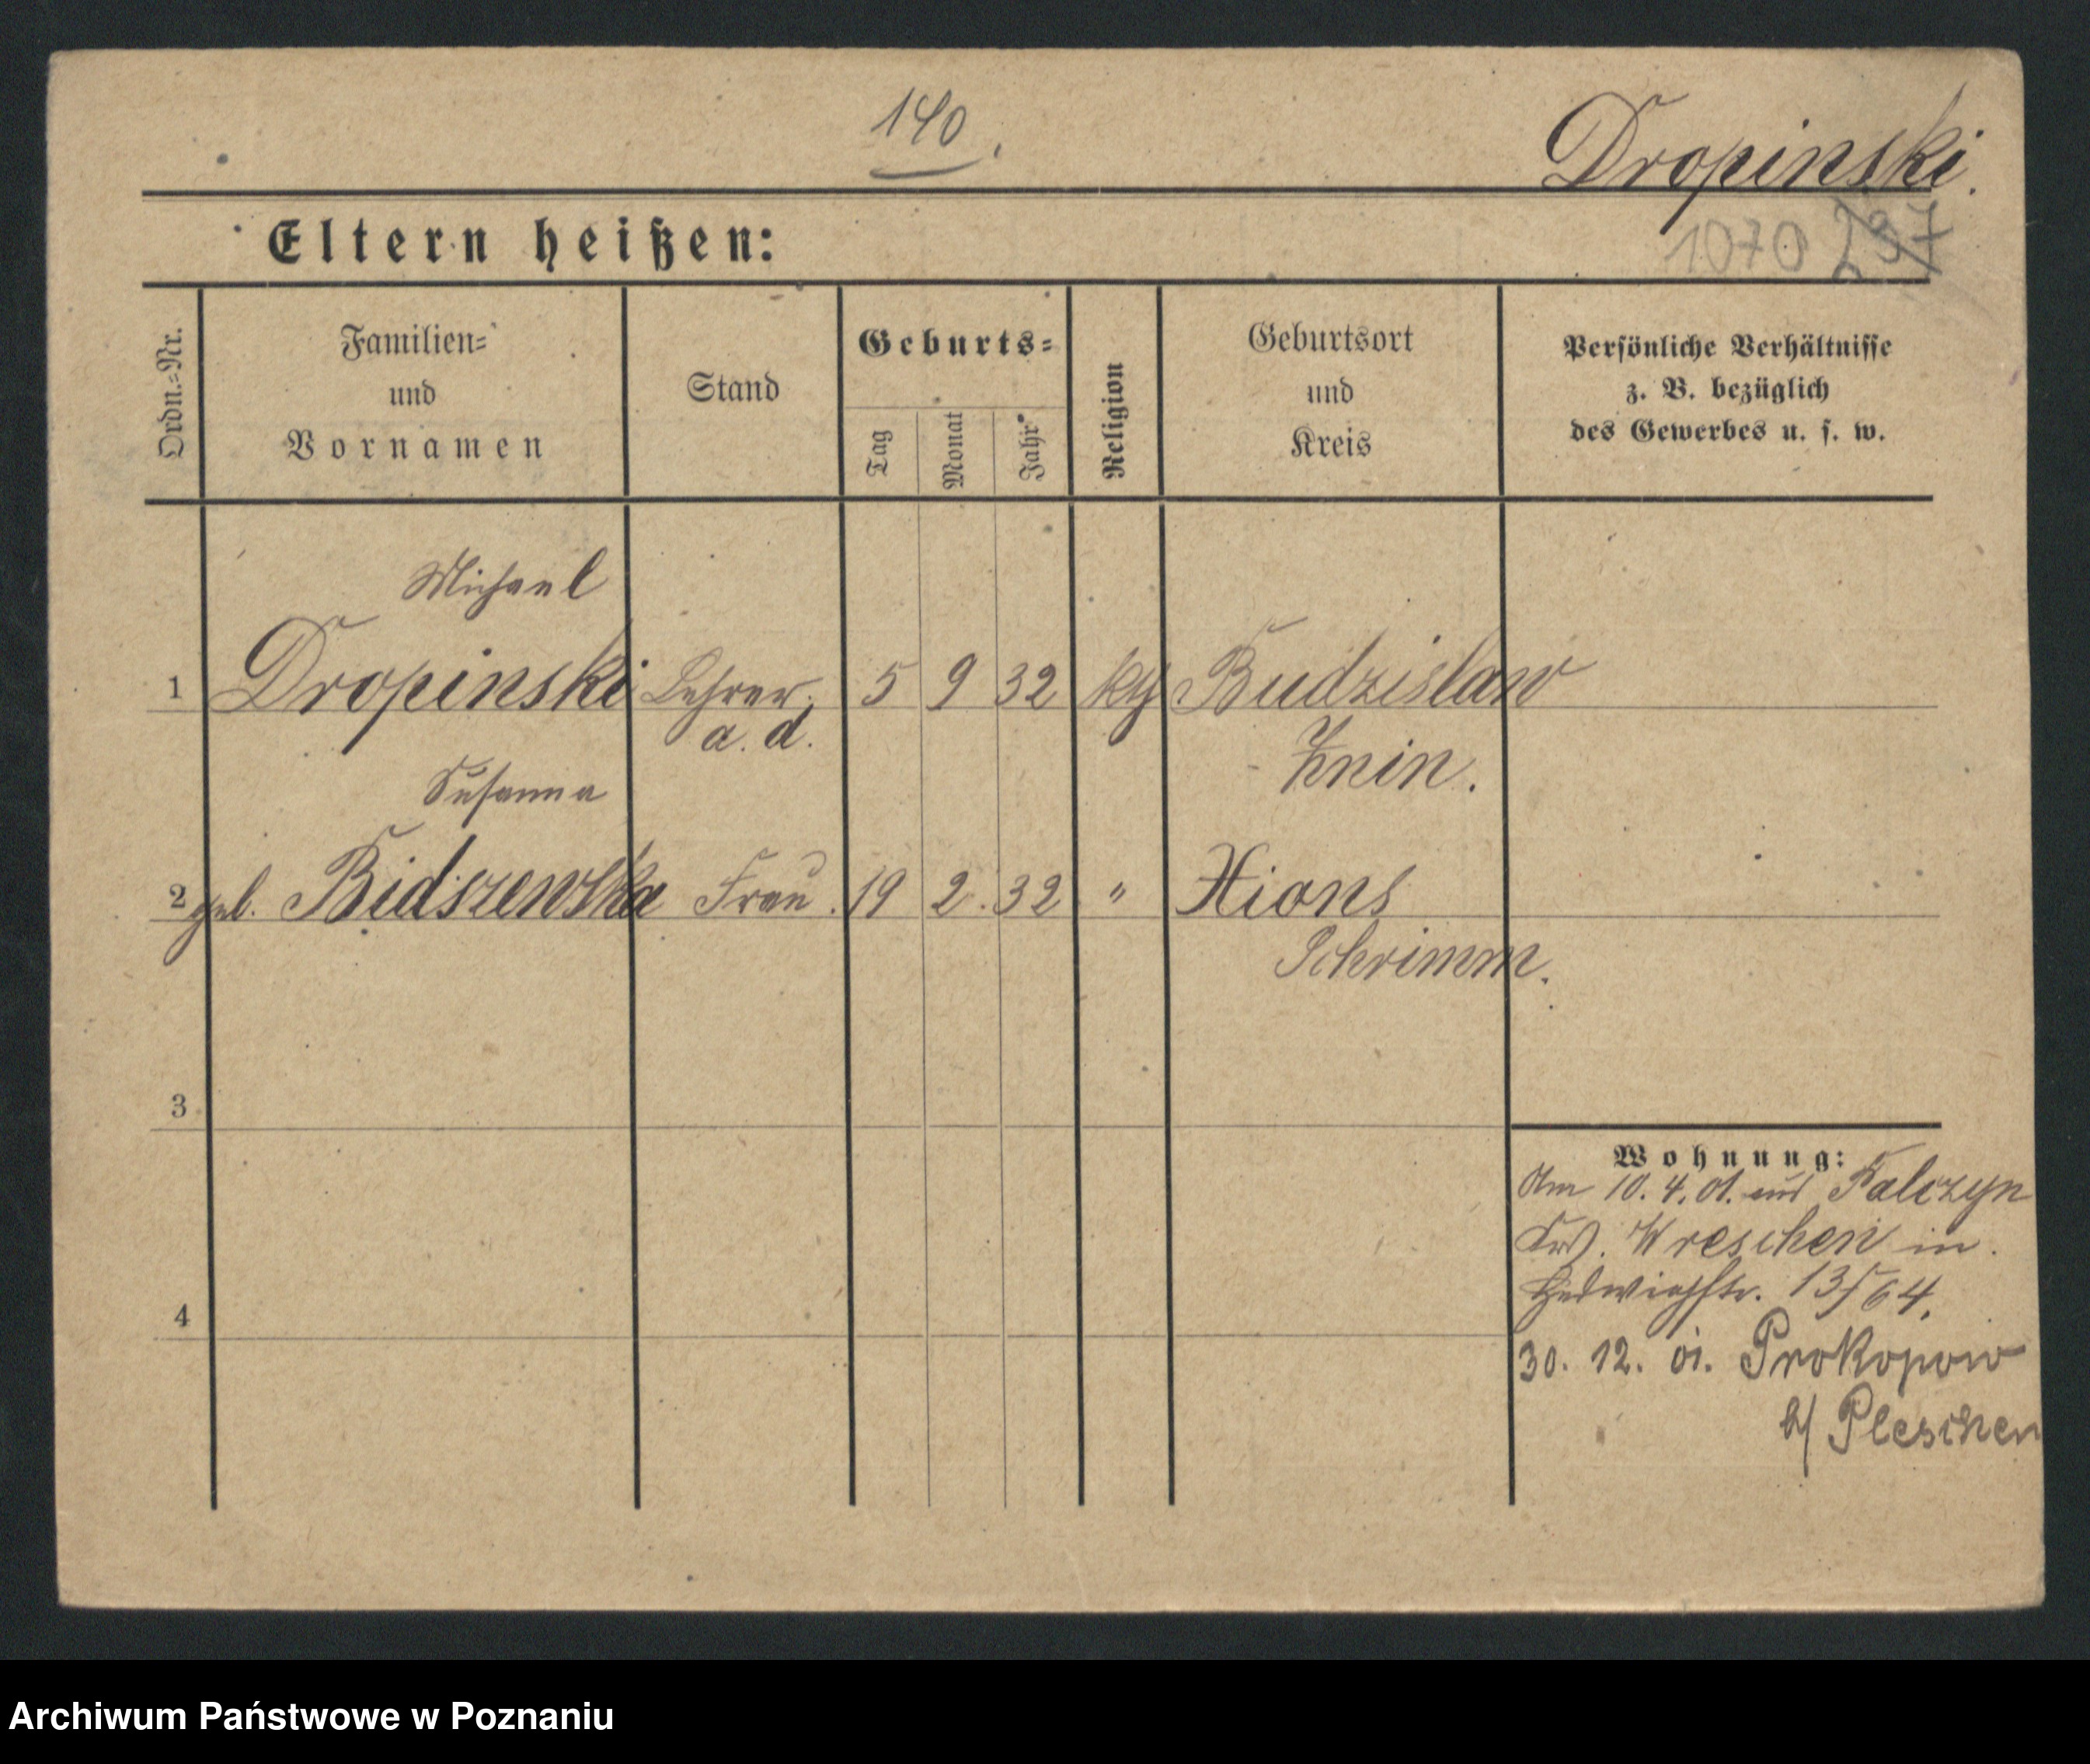 140.
Dropinski.
Eltern heißen:
1070 237
Ordn.=Nr.
Familien=
und
Vornamen
Stand
Geburts=
Tag
Monat
Jahr
Religion
Geburtsort
und
Kreis
Persönliche Verhältnisse
z. B. bezüglich
des Gewerbes u. s. w.
Michael
1 Dropinski Lehrer 5 9 32 kth Budzislaw
a. d.
Znin.
Susanna
2 geb. Bidszewska Frau. 19 2. 32 " Xions
Schrimm.
3
Wohnung:
Am 10. 4. 01. aus Falczyn
Krs. Wreschen in.
Hedwigstr. 13/64.
4
30. 12. 01. Prokopow
b/ Pleschen
Archiwum Państwowe w Poznaniu